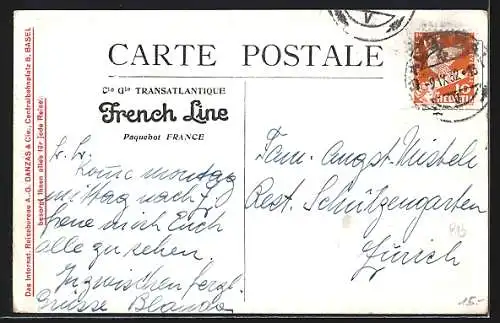 CARTE POSTALE
Cie Gle TRANSATLANTIQUE
French Line
Paquebot FRANCE
Das Internat. Reisebureau A.-G. DANZAS & Cie., Centralbahnplatz 8, BASEL
besorgt Ihnen alles für jede Reise.
Komme montag
mittag nach
freue mich Euch
alle zu sehen.
Inzwischen herzl.
Grüsse Blanda
Fam. Angst-Misteli
Rest. Schützengarten
Zürich
15.-